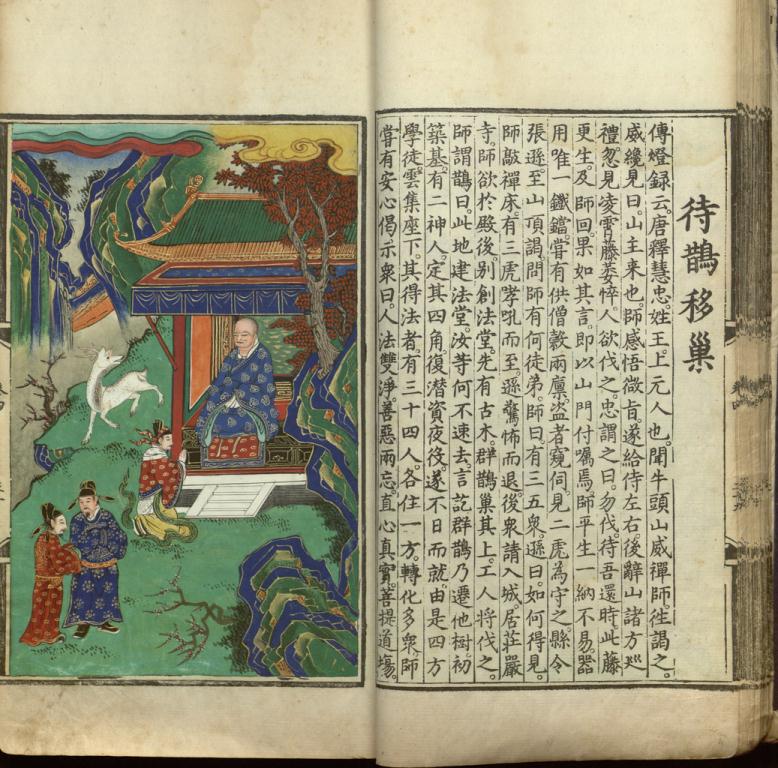 待鵲移巢
傳燈錄云。唐釋慧忠。姓王。上元人也。聞牛頭山威禪師。徃謁之。
威纔見曰。山主來也。師感悟微旨。遂給侍左右。後辭山諸方廵
禮。忽見凌霄藤萎悴。人欲伐之。忠謂之曰。勿伐。待吾還時此藤
更生。及師回。果如其言。即以山門付囑焉。師平生一納不易。器
用唯一鐵鐺。甞有供僧糓兩廪。盜者窺伺。見二虎為守之。縣令
張遜。至山頂謁。問師有何徒弟。師曰。有三五衆。遜曰。如何得見。
師敲禪床。有三虎哮吼而至。遜驚怖而退。後衆請入城。居莊嚴
寺。師欲於殿後。别創法堂。先有古木。群鵲巢其上。工人將伐之。
師謂鵲曰。此地建法堂。汝等何不速去。言訖群鵲乃遷他樹。初
築基。有二神人。定其四角。復潛資夜役。遂不日而就。由是四方
學徒雲集座下。其得法者。有三十四人。各住一方。轉化多衆。師
甞有安心偈示衆曰。人法雙淨。善惡兩忘。直心真實。菩提道塲。